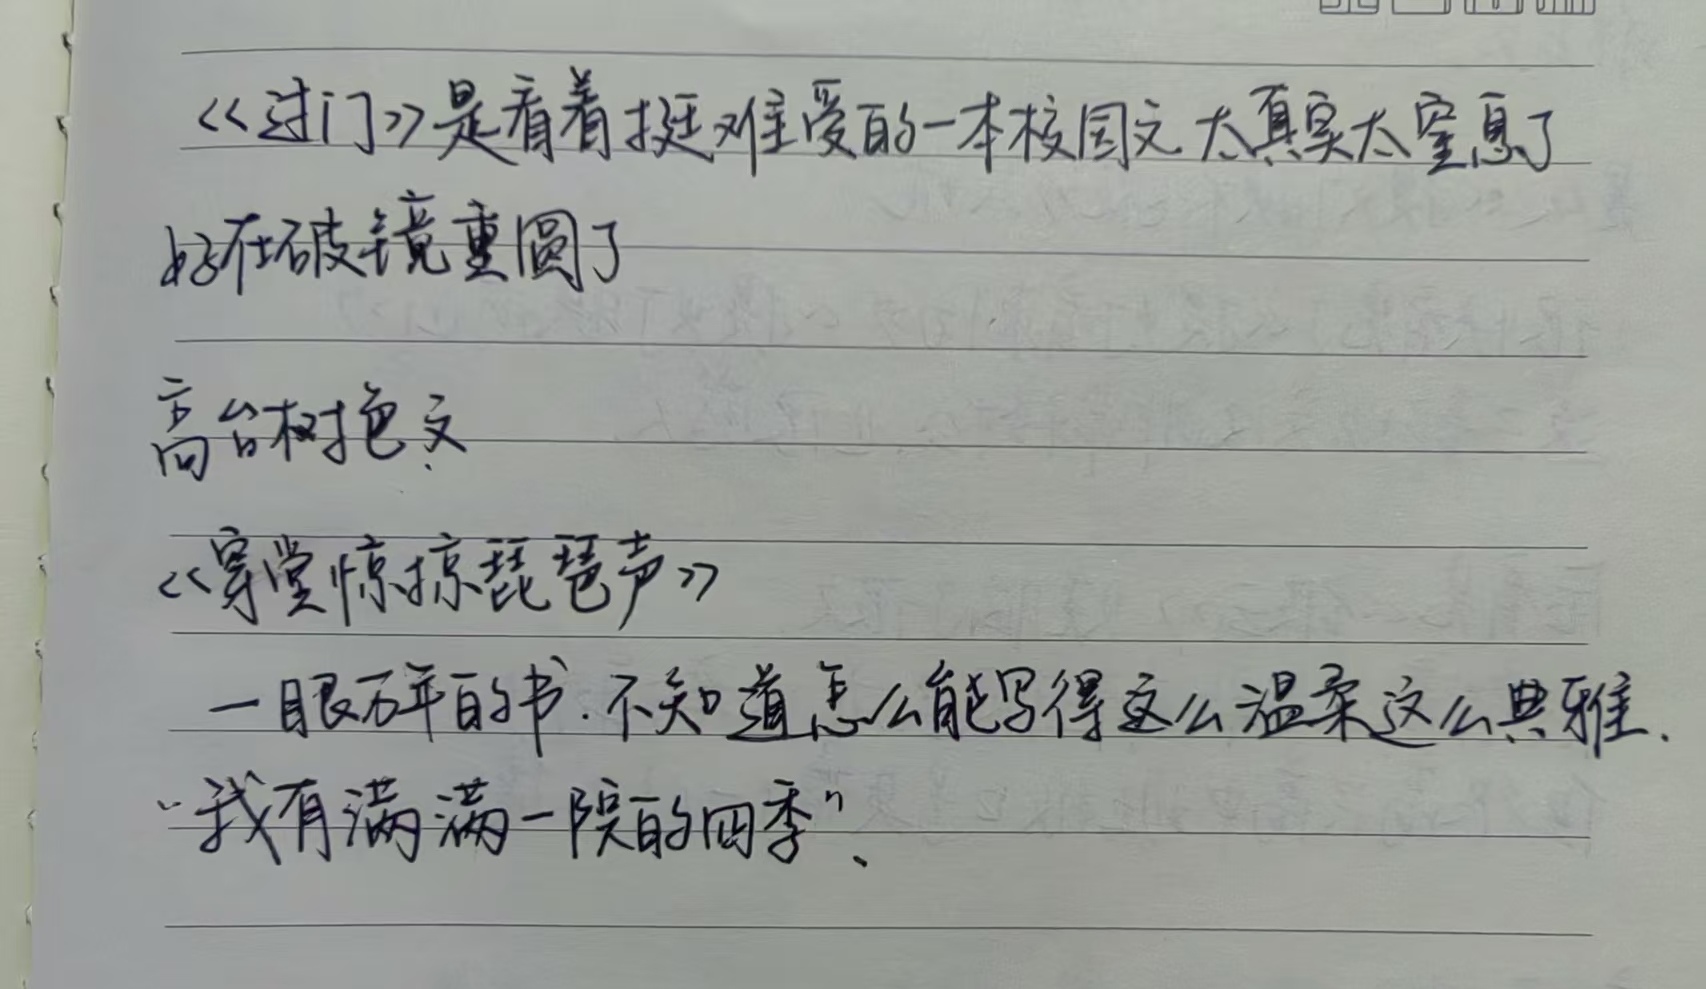 《过门》是看着挺难受的一本校园文 太真实太窒息了
好在破镜重圆了
高台树色文
《穿堂惊掠琵琶声》
一眼万年的书.不知道怎么能写得这么温柔这么典雅.
“我有满满一院的四季”、